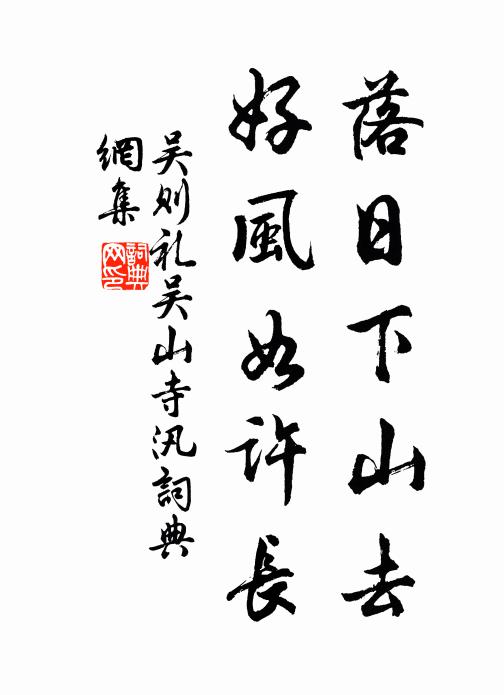 落日下山去
好風如許長
吴則礼吴山寺汎詞典
網集
詞典
网印